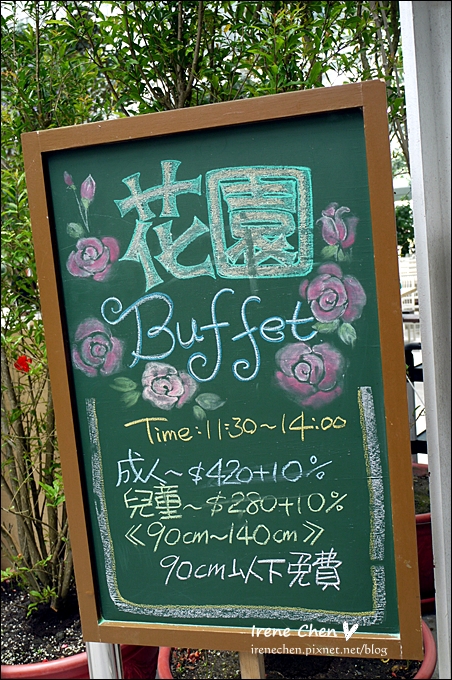 花園
Buffet
Time:11:30~14:00
成人~$420+10%
兒童~$280+10%
《90cm~140cm》
90cm以下免費
Irene Chen
irenechen.pixnet.net/blog